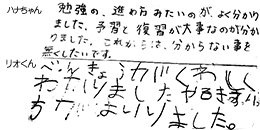 ハナちゃん 勉強の、進め方みたいのが、よく分かり
ました。予習と復習が大事なのが分か
りました。これからは、分からない事を
無くしたいです。
リオくん べんきょうがくわしく
わかりました
かたがよいりました。